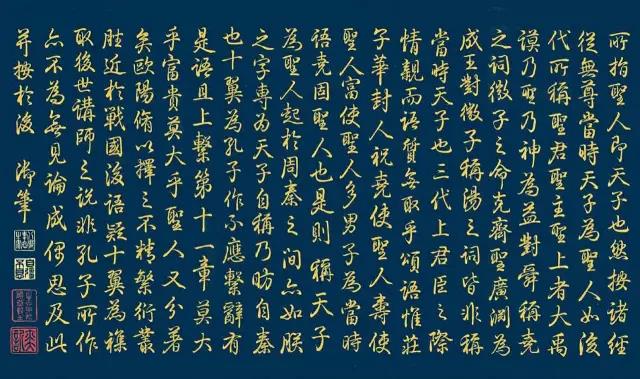 所指聖人即天子也然按諸經
從無尊當時天子為聖人如後
代所稱聖君聖主聖上者大禹
謨乃聖乃神為益對舜稱堯
之詞微子之命克齋聖廣淵為
成王對微子稱湯之詞皆非稱
當時天子也三代上君臣之際
情親而語質無取乎頌語惟莊
子華封人祝堯使聖人壽使
聖人富使聖人多男子為當時
語堯固聖人也是則稱天子
為聖人起於周秦之間亦如朕
之字專為天子自稱乃昉自秦
也十翼為孔子作不應繫辭有
是語且上繫第十一章莫大
乎富貴莫大乎聖人又分著
矣歐陽脩以擇之不精繁衍叢
脞近於戰國後語疑十翼為襍
取後世講師之說非孔子所作
亦不為無見論成偶思及此
并按於後 御筆